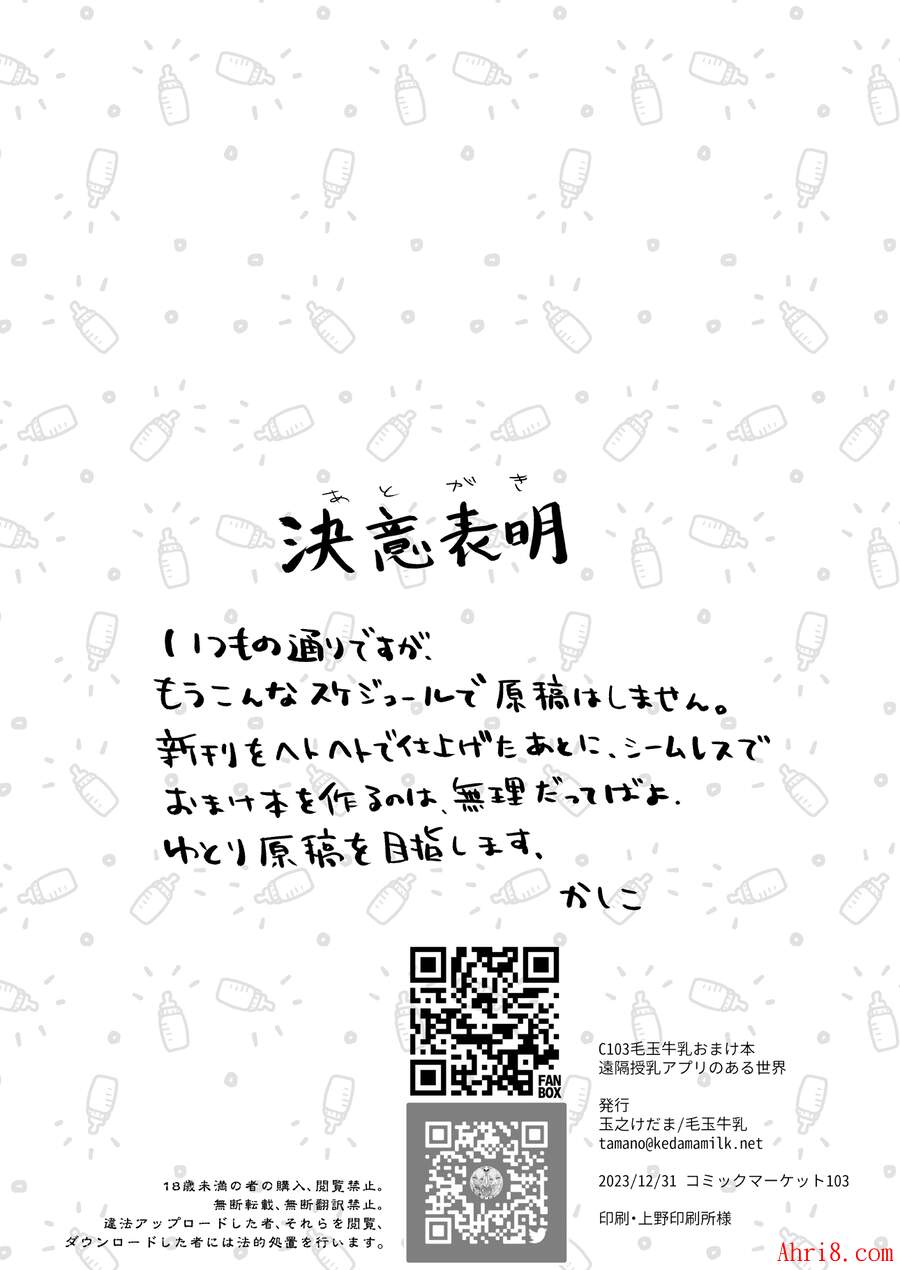 あとがき
決意表明
いつもの通りですが、
もうこんなスケジュールで原稿はしません。
新刊をヘトヘトで仕上げたあとに、シームレスで
おまけ本を作るのは、無理だってばよ.
ゆとり原稿を目指します、
かしこ
FAN
BOX
C103毛玉牛乳おまけ本
遠隔授乳アプリのある世界
発行
玉之けだま/毛玉牛乳
tamano@kedamamilk.net
2023/12/31 コミックマーケット103
印刷・上野印刷所様
18歳未満の者の購入、閲覧禁止。
無断転載、無断翻訳禁止。
違法アップロードした者、それらを閲覧、
ダウンロードした者には法的処置を行います。
Ahri8.com